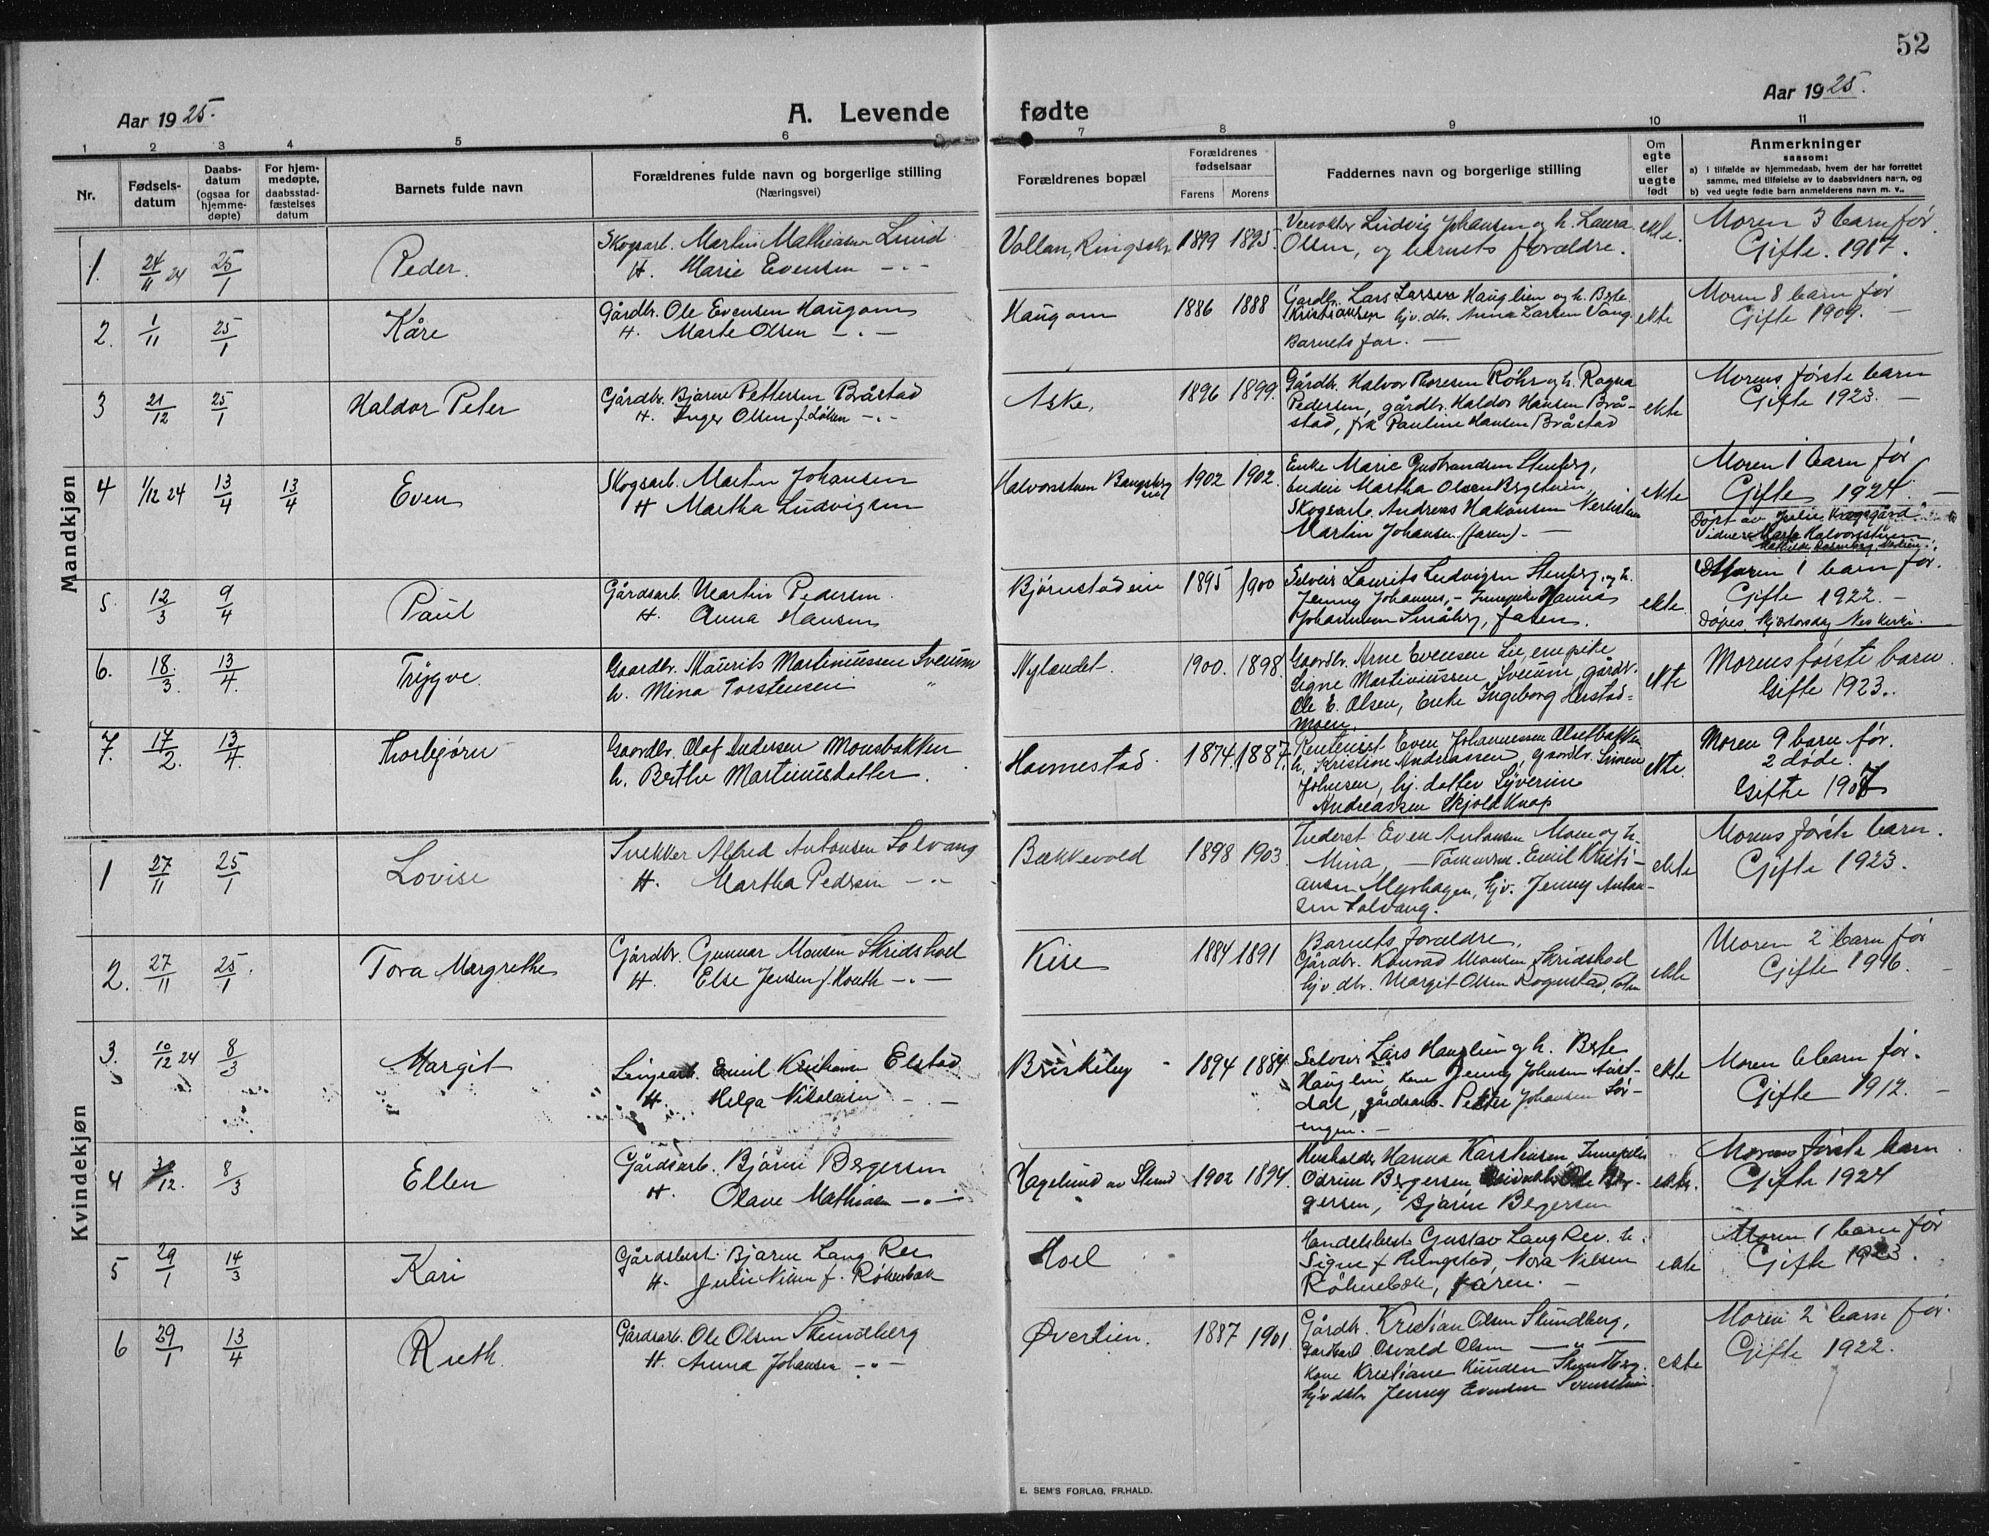 52
Aar 1925.
A. Levende fødte
Aar 1925.
1 2 3 4 5 6 7 8 9 10 11
Nr.
Fødsels-
datum
Daabs-
datum
(ogsaa for
hjemme-
døpte)
For hjem-
medøpte,
daabsstad-
fæstelses
datum
Barnets fulde navn
Forældrenes fulde navn og borgerlige stilling
(Næringsvei)
Forældrenes bopæl
Forældrenes
fødselsaar
Farens Morens
Faddernes navn og borgerlige stilling
Om
egte
eller
uegte
født
Anmerkninger
saasom:
a) I tilfælde av hjemmedaab, hvem der har forrettet
samme, med tilføielse av to daabsvidners navn, og
b) ved uegte fødte barn anmelderens navn m. v..
Mandkjøn
1. 24/11 24 25/1 Peder.
Skogsarb. Martin Mathiasen Lund
H. Marie Evensen -.-
Vollan, 1899 1895
Ludvig Johansen og h. Laura
Olsen, og barnets forældre.
ekte.
Moren 3 barn før.
Gifte. 1917.
2. 1/11 25/1 Kåre
Gårdbr. Ole Evensen Haugom
H. Marte Olsen -.-
Haugom 1886 1888
Gårdbr. Lars Larsen Hauglien og h. Berte
Kristiansen hjv. dtr. Anna Larsen Vang
Barnets far. —
ekte
Moren 8 barn før
Gifte 1909. —
3 21/12 25/1 Haldor Peter
Gårdbr. Bjarne Pettersen Bråstad
H. Inger Olsen f. Løken -.-
Aske, 1896 1899
Gårdbr. Halvor Thoresen Røhr og h. Ragna
Pedersen, gårdbr. Haldor Hansen Brå-
stad, frk Pauline Hansen Bråstad
ekte
Morens første barn
Gifte 1923. —
4 1/12 24 13/4 13/4 Even
Skogsarb. Martin Johansen
H Martha Ludvigsen
Halvorsstuen 1902 1902
Enke Marie Gudbrandsen Stenberg,
Martha Olsen
Skogsarb. Andreas Hakansen
Martin Johansen (faren). —
ekte
Moren 1 barn før
Gifte 1924. —
Døpt av Julie
Vidner
5. 12/3 9/4 Paul
Gårdsarb. Martin Pedersen
H. Anna Hansen
Bjørnstadeie 1895 1900
Selveier Laurits Ludvigsen Stenberg, og h.
Jenny Johannes, - Hanna
Johannesen Småberg, faren.
ekte
Moren 1 barn før.
Gifte 1922. —
Døpes. Skjærtorsdag Nes kirke.
6. 18/3 13/4 Trygve
Gaardbr. Maurits Martiniussen Sveum
h. Mina Torstensen "
Nylandet. 1900. 1898.
Gaardbr. Arne Evensen Lie en pike
Signe Martiniussen Sveum, gårdbr.
Ole E. Olsen, Enke Ingeborg Herstad-
moen
ekte
Morens første barn.
Gifte 1923.
7. 17/2. 13/4. Thorbjørn
Gaardbr. Olaf Andersen Monsbakken
h. Berthe Martinusdatter.
Hommestad. 1874. 1887.
Rentenist Even Johannessen Alsetbakken
h. Kristine Andreassen, gaardbr. Simen
Johnsen, hj. datter Syverine
Andreassen Skjold Knap
ekte.
Moren 9 barn før.
2 døde.
Gifte 1907
Kvindekjøn
1 27/11 25/1 Lovise
Alfred Antonsen Solvang
H. Martha Pedersen -.-
Bækkevold 1898 1903
Inderst Even Antonsen Moen og h.
Mina, — Emil Kristi-
ansen Myrhagen, hjv. Jenny Anton-
sen Solvang.
ekte
Morens første barn.
Gifte 1923.
2. 27/11 25/1. Tora Margrethe
Gårdbr. Gunnar Monsen Skridshol
H. Else Jensen f. -.-
Kise 1884 1891
Barnets forældre,
Gårdbr. Konrad Monsen Skridshol
hjv. dtr. Margit Olsen Rognstad,
ekte
Moren 2 barn før
Gifte 1916. —
3. 10/12 24 8/3 Margit
Emil Kristiansen Elstad
H. Helga Nikolaisen - . -
Briskeby 1894 1884
Selveier Lars Hauglien og h. Berte
Hauglien, kone Jenny Johnsen
dal, gårdsarb. Petter Johansen Sør-
engen. -
ekte
Moren 6 barn før.
Gifte 1912. —
4 /12. 8/3 Ellen
Gårdsarb. Bjarne Bergersen
H. Olave Mathisen -.-
Hagelund av 1902 1894
Hanna Karstensen
Odrun Bergersen Ole Ber-
gersen, Bjarne Bergersen
ekte.
Morens første barn
Gifte 1924
5 29/1 14/3 Kari
Gårdsbest. Bjarne Lang Ree
H. Julie Nilsen f.
Hoel
Handelsbest. Gustav Lang Ree. h.
Signe f. Nora Nilsen
faren. —
ekte
Moren 1 barn før
Gifte 1923.
6 29/1 13/4 Ruth.
Gårdsarb. Ole Olsen Skundberg
H. Anna Johansen -.-
Øverlien. 1887 1901.
Gårdbr. Kristian Olsen Skundberg,
Gårdarb Osvald Olsen — " —
Kone Kristiane Knudsen Skundberg.
Hjv dtr Jenny Evensen
ekte
Moren 2 barn før.
Gifte 1922.
E. SEM'S FORLAG, FR.HALD.